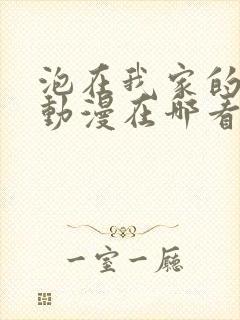 泡在我家的
動漫在哪看
一室一廳